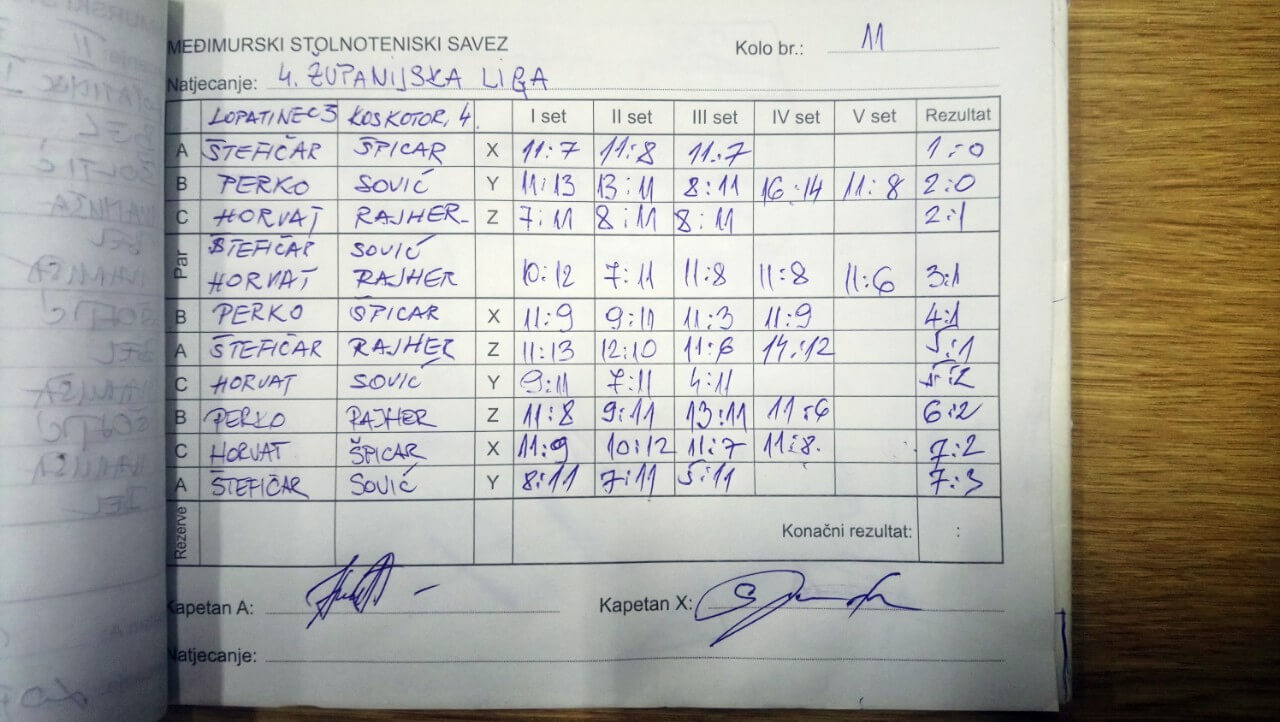 MEĐIMURSKI STOLNOTENISKI SAVEZ Kolo br.: 11
Natjecanje: 4. ŽUPANIJSKA LIGA
LOPATINEC 3 KOSKOTOR, 4. I set II set III set IV set V set Rezultat
A ŠTEFIČAR ŠPICAR X 11:7 11:8 11:7 1:0
B PERKO SOVIĆ Y 11:13 13:11 8:11 16:14 11:8 2:0
C HORVAT RAJHER Z 7:11 8:11 8:11 2:1
Par ŠTEFIČAR SOVIĆ
HORVAT RAJHER 10:12 7:11 11:8 11:8 11:6 3:1
B PERKO ŠPICAR X 11:9 9:11 11:3 11:9 4:1
A ŠTEFIČAR RAJHER Z 11:13 12:10 11:6 14:12 5:1
C HORVAT SOVIĆ Y 9:11 7:11 4:11 5:2
B PERKO RAJHER Z 11:8 9:11 13:11 11:6 6:2
C HORVAT ŠPICAR X 11:9 10:12 11:7 11:8. 7:2
A ŠTEFIČAR SOVIĆ Y 8:11 7:11 5:11 7:3
Rezerve Konačni rezultat: :
Kapetan A: Kapetan X:
Natjecanje: